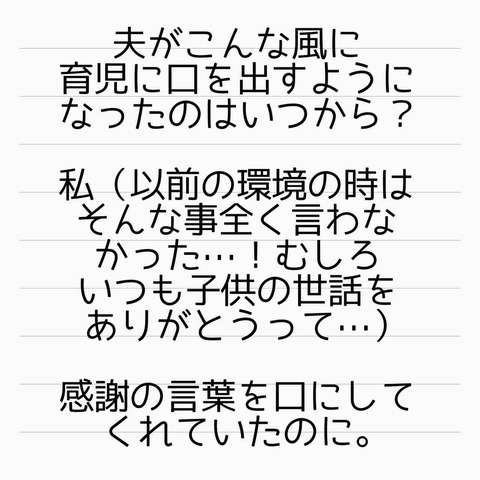 夫がこんな風に
育児に口を出すように
なったのはいつから？
私（以前の環境の時は
そんな事全く言わな
かった…！むしろ
いつも子供の世話を
ありがとうって…）
感謝の言葉を口にして
くれていたのに。